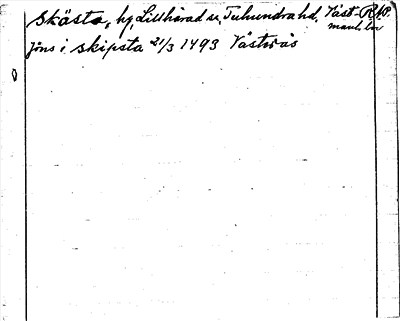 Skästa, by, Lillhärad sn, Tuhundra hd, Väst-
manl. län
Jöns i skipsta 21/3 1493 Västerås